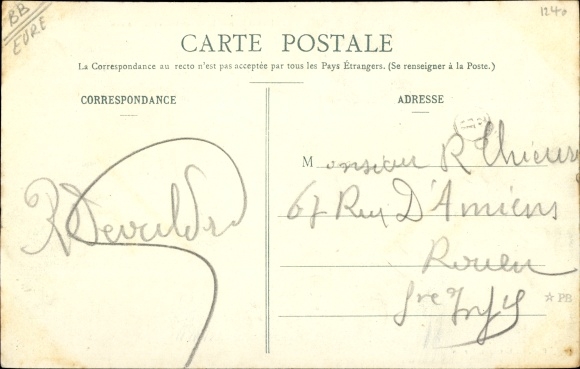 BB
EURE
1240
CARTE POSTALE
La Correspondance au recto n'est pas acceptée par tous les Pays Étrangers. (Se renseigner à la Poste.)
CORRESPONDANCE
ADRESSE
Monsieur R Thieury
67 Rue D'Amiens
Rouen
Sre Infre
☆ PB